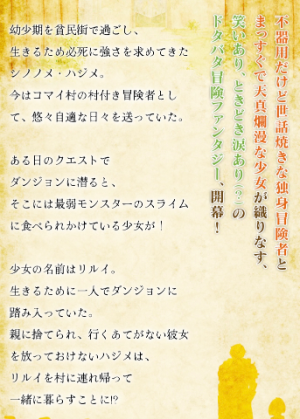 不器用だけど世話焼きな独身冒険者と
まっすぐで天真爛漫な少女が織りなす、
笑いあり、ときどき涙あり(?)の
ドタバタ冒険ファンタジー、開幕!
幼少期を貧民街で過ごし、
生きるため必死に強さを求めてきた
シノノメ・ハジメ。
今はコマイ村の村付き冒険者とし
て、悠々自適な日々を送っていた。
ある日のクエストで
ダンジョンに潜ると、
そこには最弱モンスターのスライム
に食べられかけている少女が!
少女の名前はリルイ。
生きるために一人でダンジョンに
踏み入っていた。
親に捨てられ、行くあてがない彼女
を放っておけないハジメは、
リルイを村に連れ帰って
一緒に暮らすことに!?